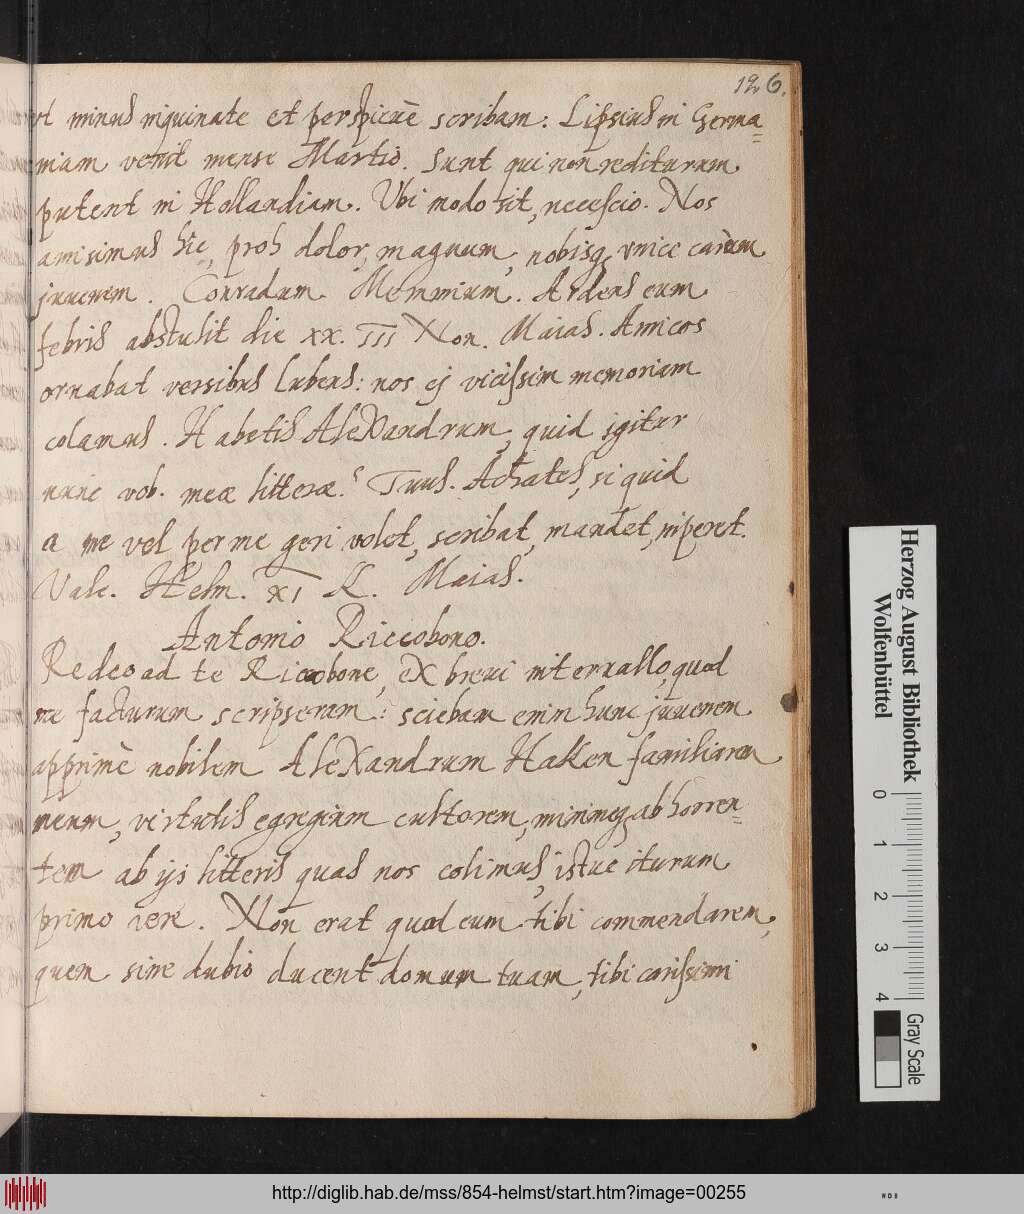 126.
vt minus inquinate et perspicuè scribam: Lipsius in Germa=
niam venit mense Martio. Sunt qui non rediturum
putent in Hollandiam. Vbi modo sit, nec escio. Nos
amisimus hic, proh dolor, magnum, nobisq vnice carum
juuenem. Conradum Memmium. Ardens eum
febris abstulit die XX. III Non. Maias. Amicos
ornabat versibus lubens: nos ej vicissim memoriam
colamus. Habetis Alexandrum, quid igitur
nunc vob. meæ litteræ? Tuus. Achates, si quid
a me vel per me geri volet, scribat, mandet, inperet.
Vale. Helm. XI K. Maias.
Antonio Riccobono.
Redeo ad te Riccobone, ex breui interuallo, quod
me facturum scripseram: sciebam enim hunc juuenem
apprimè nobilem Alexandrum Haken familiarem
meum, virtutis egregium cultorem, minimeq abhorren=
tem ab ijs litteris quas nos colimus, istuc iturum
primo vere. Non erat quod eum tibi commendarem,
quem sine dubio ducent domum tuam, tibi carissimi
Herzog August Bibliothek
Wolfenbüttel
0 1 2 3 4
Gray Scale
http://diglib.hab.de/mss/854-helmst/start.htm?image=00255